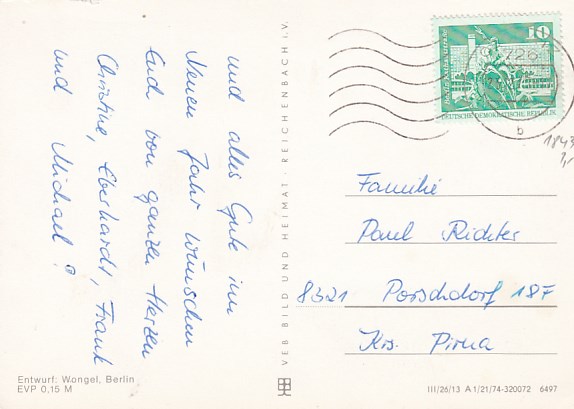 und alles Gute im
Neuen Jahr wünschen
Euch von ganzen Herzen
Christine, Eberhardt, Frank
und Michael
Entwurf: Wongel, Berlin
EVP 0,15 M
VEB BILD UND HEIMAT · REICHENBACH i.V.
10
DEUTSCHE DEMOKRATISCHE REPUBLIK
b
1843
Familie
Paul Richter
8321 Porschdorf 187
Krs. Pirna
III/26/13 A 1/21/74-320072 6497